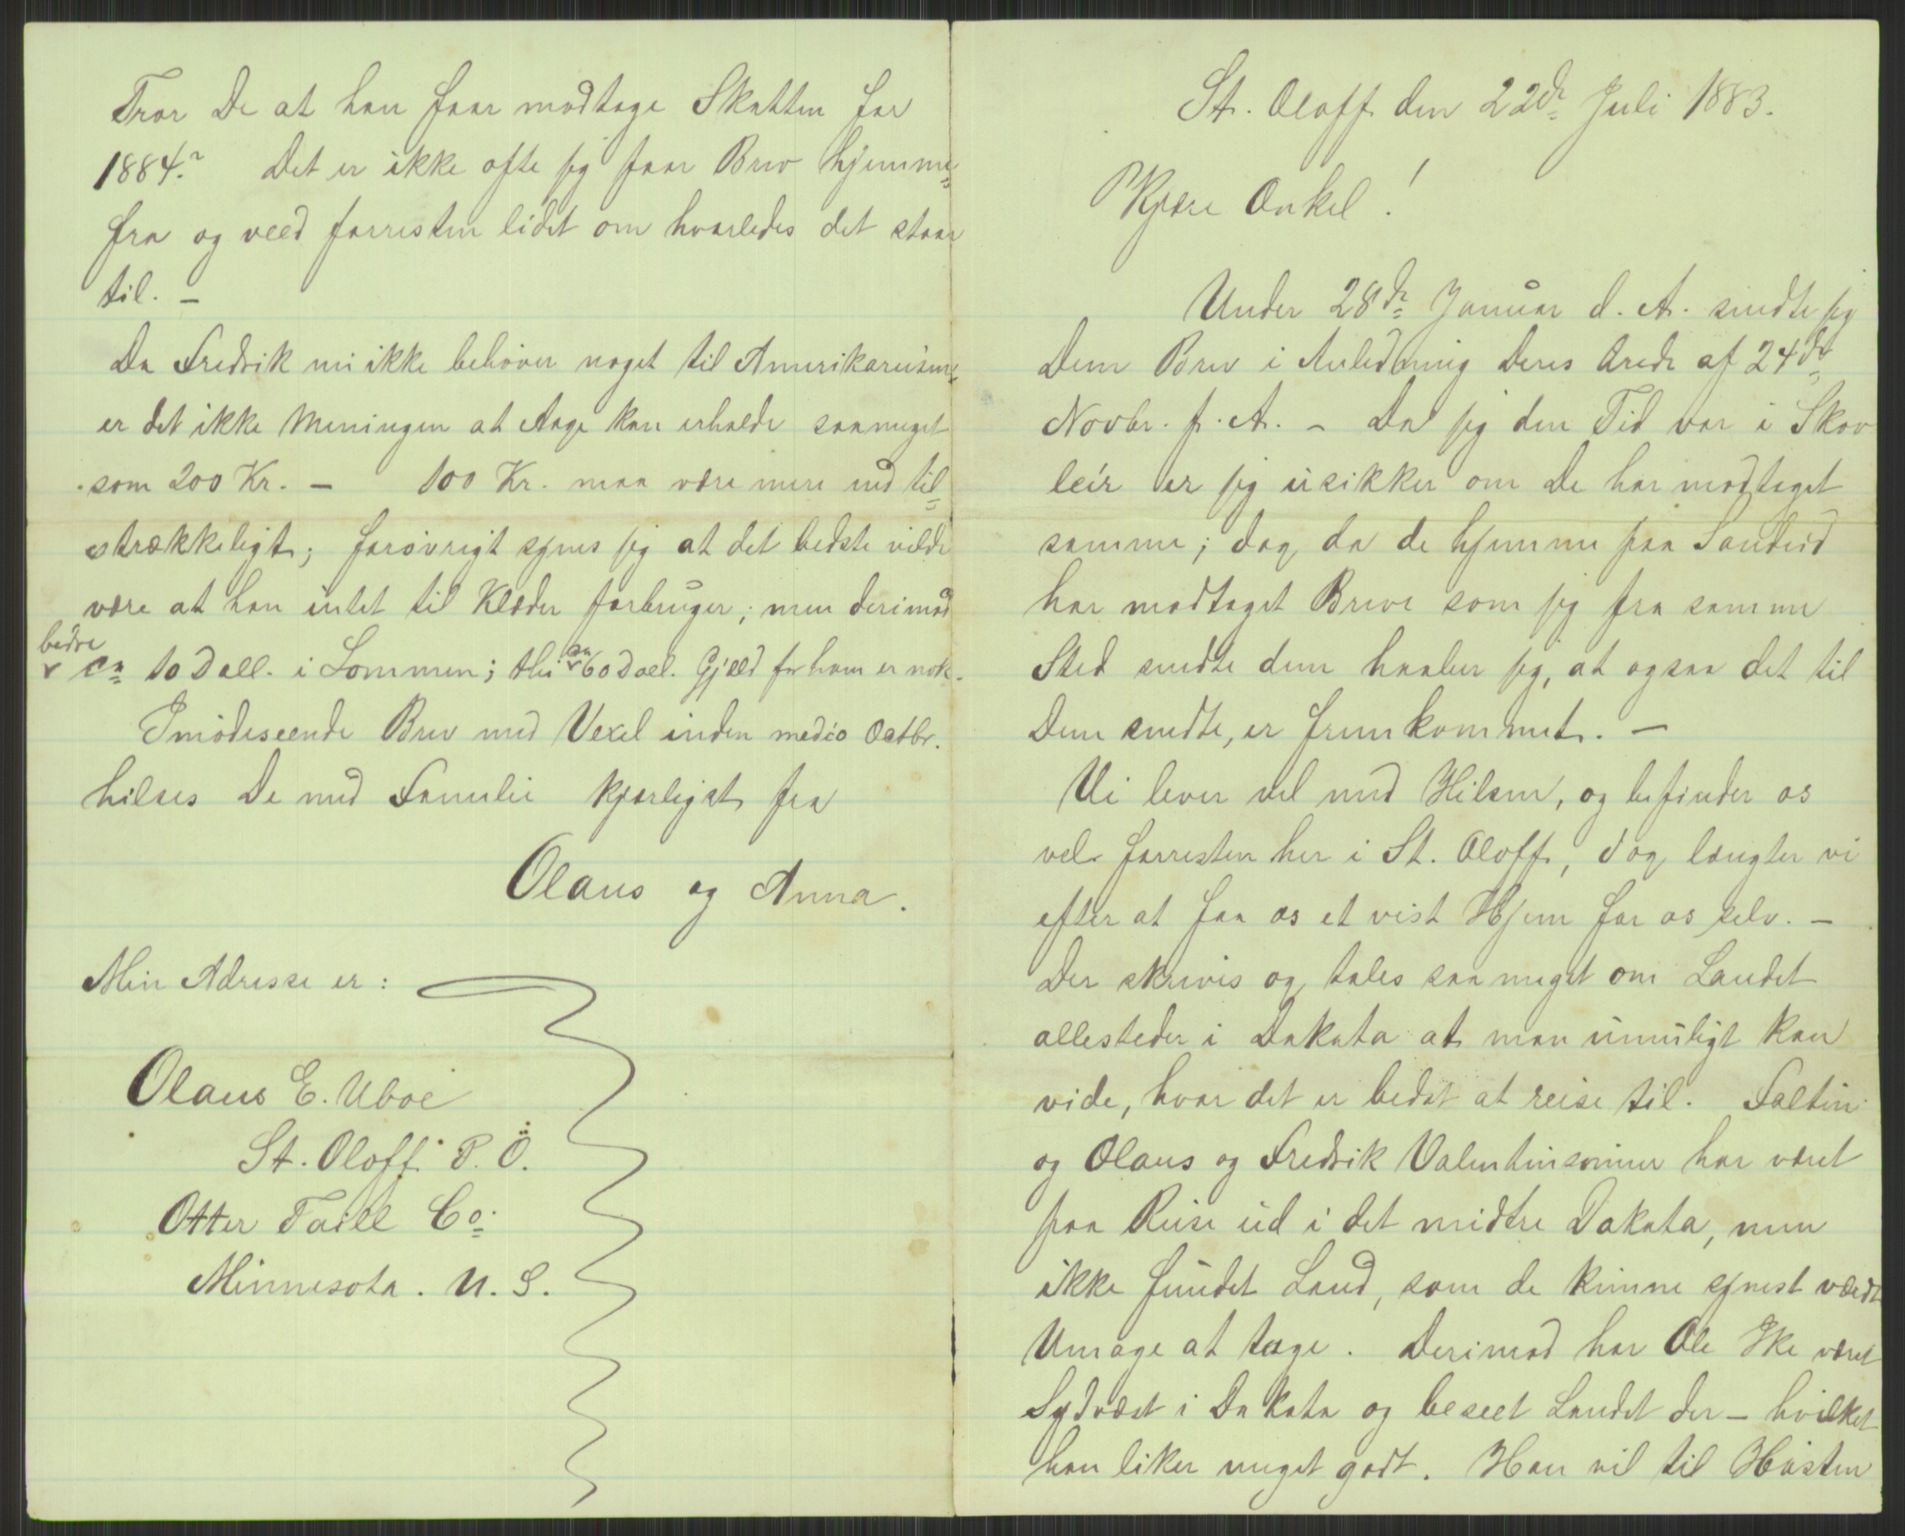 Tror De at han faar modtage Skatten for
1884? Det er ikke ofte jeg faar Brev hjemme=
fra og veed forresten lidet om hvorledes det staar
til. –
Da Fredrik nu ikke behøver noget til Amerikareisen,
er det ikke Meningen at Aage kan erholde saameget
som 200 Kr. – 100 Kr. maa være mere end til=
strækkeligt; forøvrigt synes jeg at det bedste vilde
være at han intet til Klæder forbruger; men derimod
bedre
v ca 10 Doll. i Lommen; thi ca 60 Doll. Gjæld for ham er nok.
Imødeseende Brev med Vexel inden medio Octbr.
hilses De med Familie kjærligst fra
Olaus og Anna.
Min Adresse er:
Olaus E. Uboe
St. Oloff P. O.
Otter Taill Co.
Minnesota. U. S.
St. Oloff den 22de Juli 1883.
Kjære Onkel!
Under 28de Januar d. A. sendte jeg
Dem Brev i Anledning Deres Ærede af 24de
Novbr. f. A. – Da jeg den Tid var i Skov
leir er jeg usikker om De har modtaget
samme; dog da de hjemme paa Sandeid
har modtaget Breve som jeg fra samme
Sted sendte dem haaber jeg, at ogsaa det til
Dem sendte, er fremkommet. –
Vi lever vel med Hilsen, og befinder os
vel forresten her i St. Oloff, dog længter vi
efter at faa os et vist Hjem for os selv. –
Der skrives og tales saa meget om Landet
allesteder i Dakota at man umuligt kan
vide, hvor det er bedst at reise til. Faltin
og Olaus og Fredrik Valentinsønner har været
paa Reise ud i det midtre Dakota, men
ikke fundet Land, som de kunne synest værdt
Umage at tage. Derimod har Ole Ike været
Sydvæst i Dakota og beseet Landet der – hvilket
han liker meget godt. Han vil til Høsten